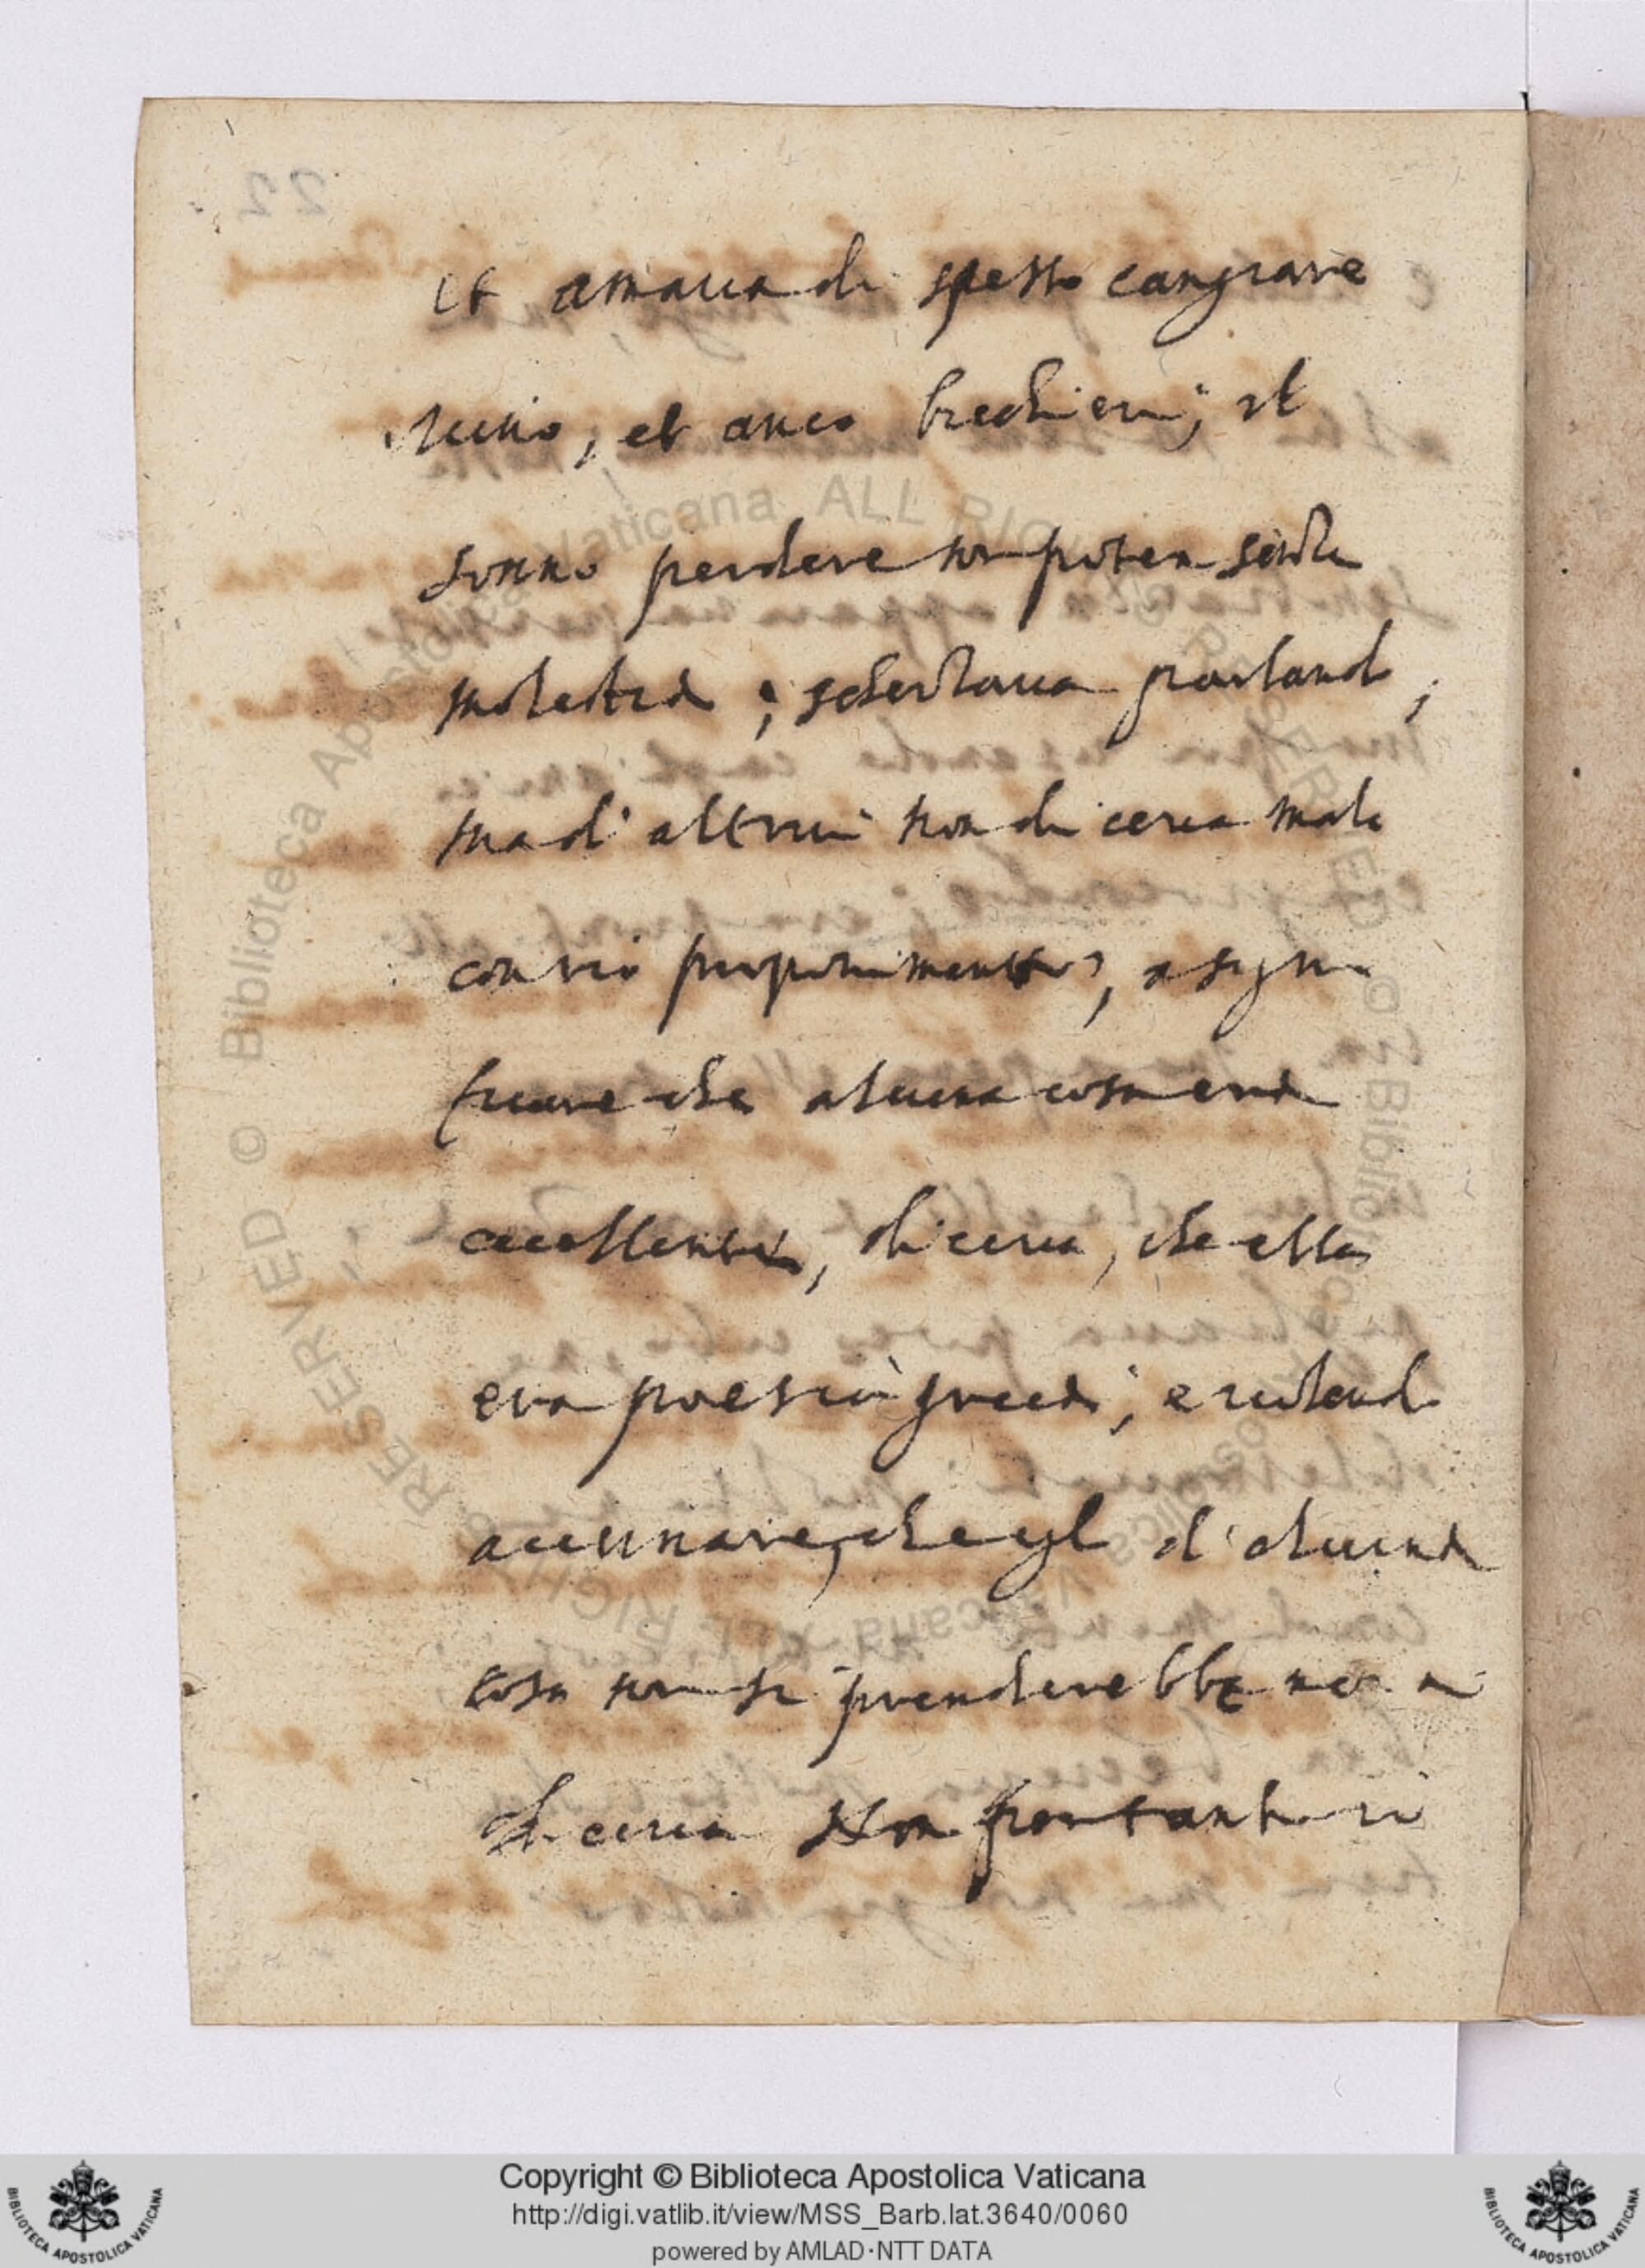 et amaua di spesso cangiare
uino, et anco bicchieri; il
sonno perdere non potea senza
molestia; scherzaua parlando;
ma d'altrui non diceua male
con rio proponimento, a signi
ficare che alcuna cosa era
eccellente, diceua, che ella
era poesia greca; e uolendo
accennare, che egli d'alcuna
cosa non si prenderebbe noia
diceua Non per tanto io
22
© Biblioteca Apostolica Vaticana ALL RIGHTS RESERVED
Copyright © Biblioteca Apostolica Vaticana
http://digi.vatlib.it/view/MSS_Barb.lat.3640/0060
powered by AMLAD·NTT DATA
BIBLIOTECA APOSTOLICA VATICANA
BIBLIOTECA APOSTOLICA VATICANA